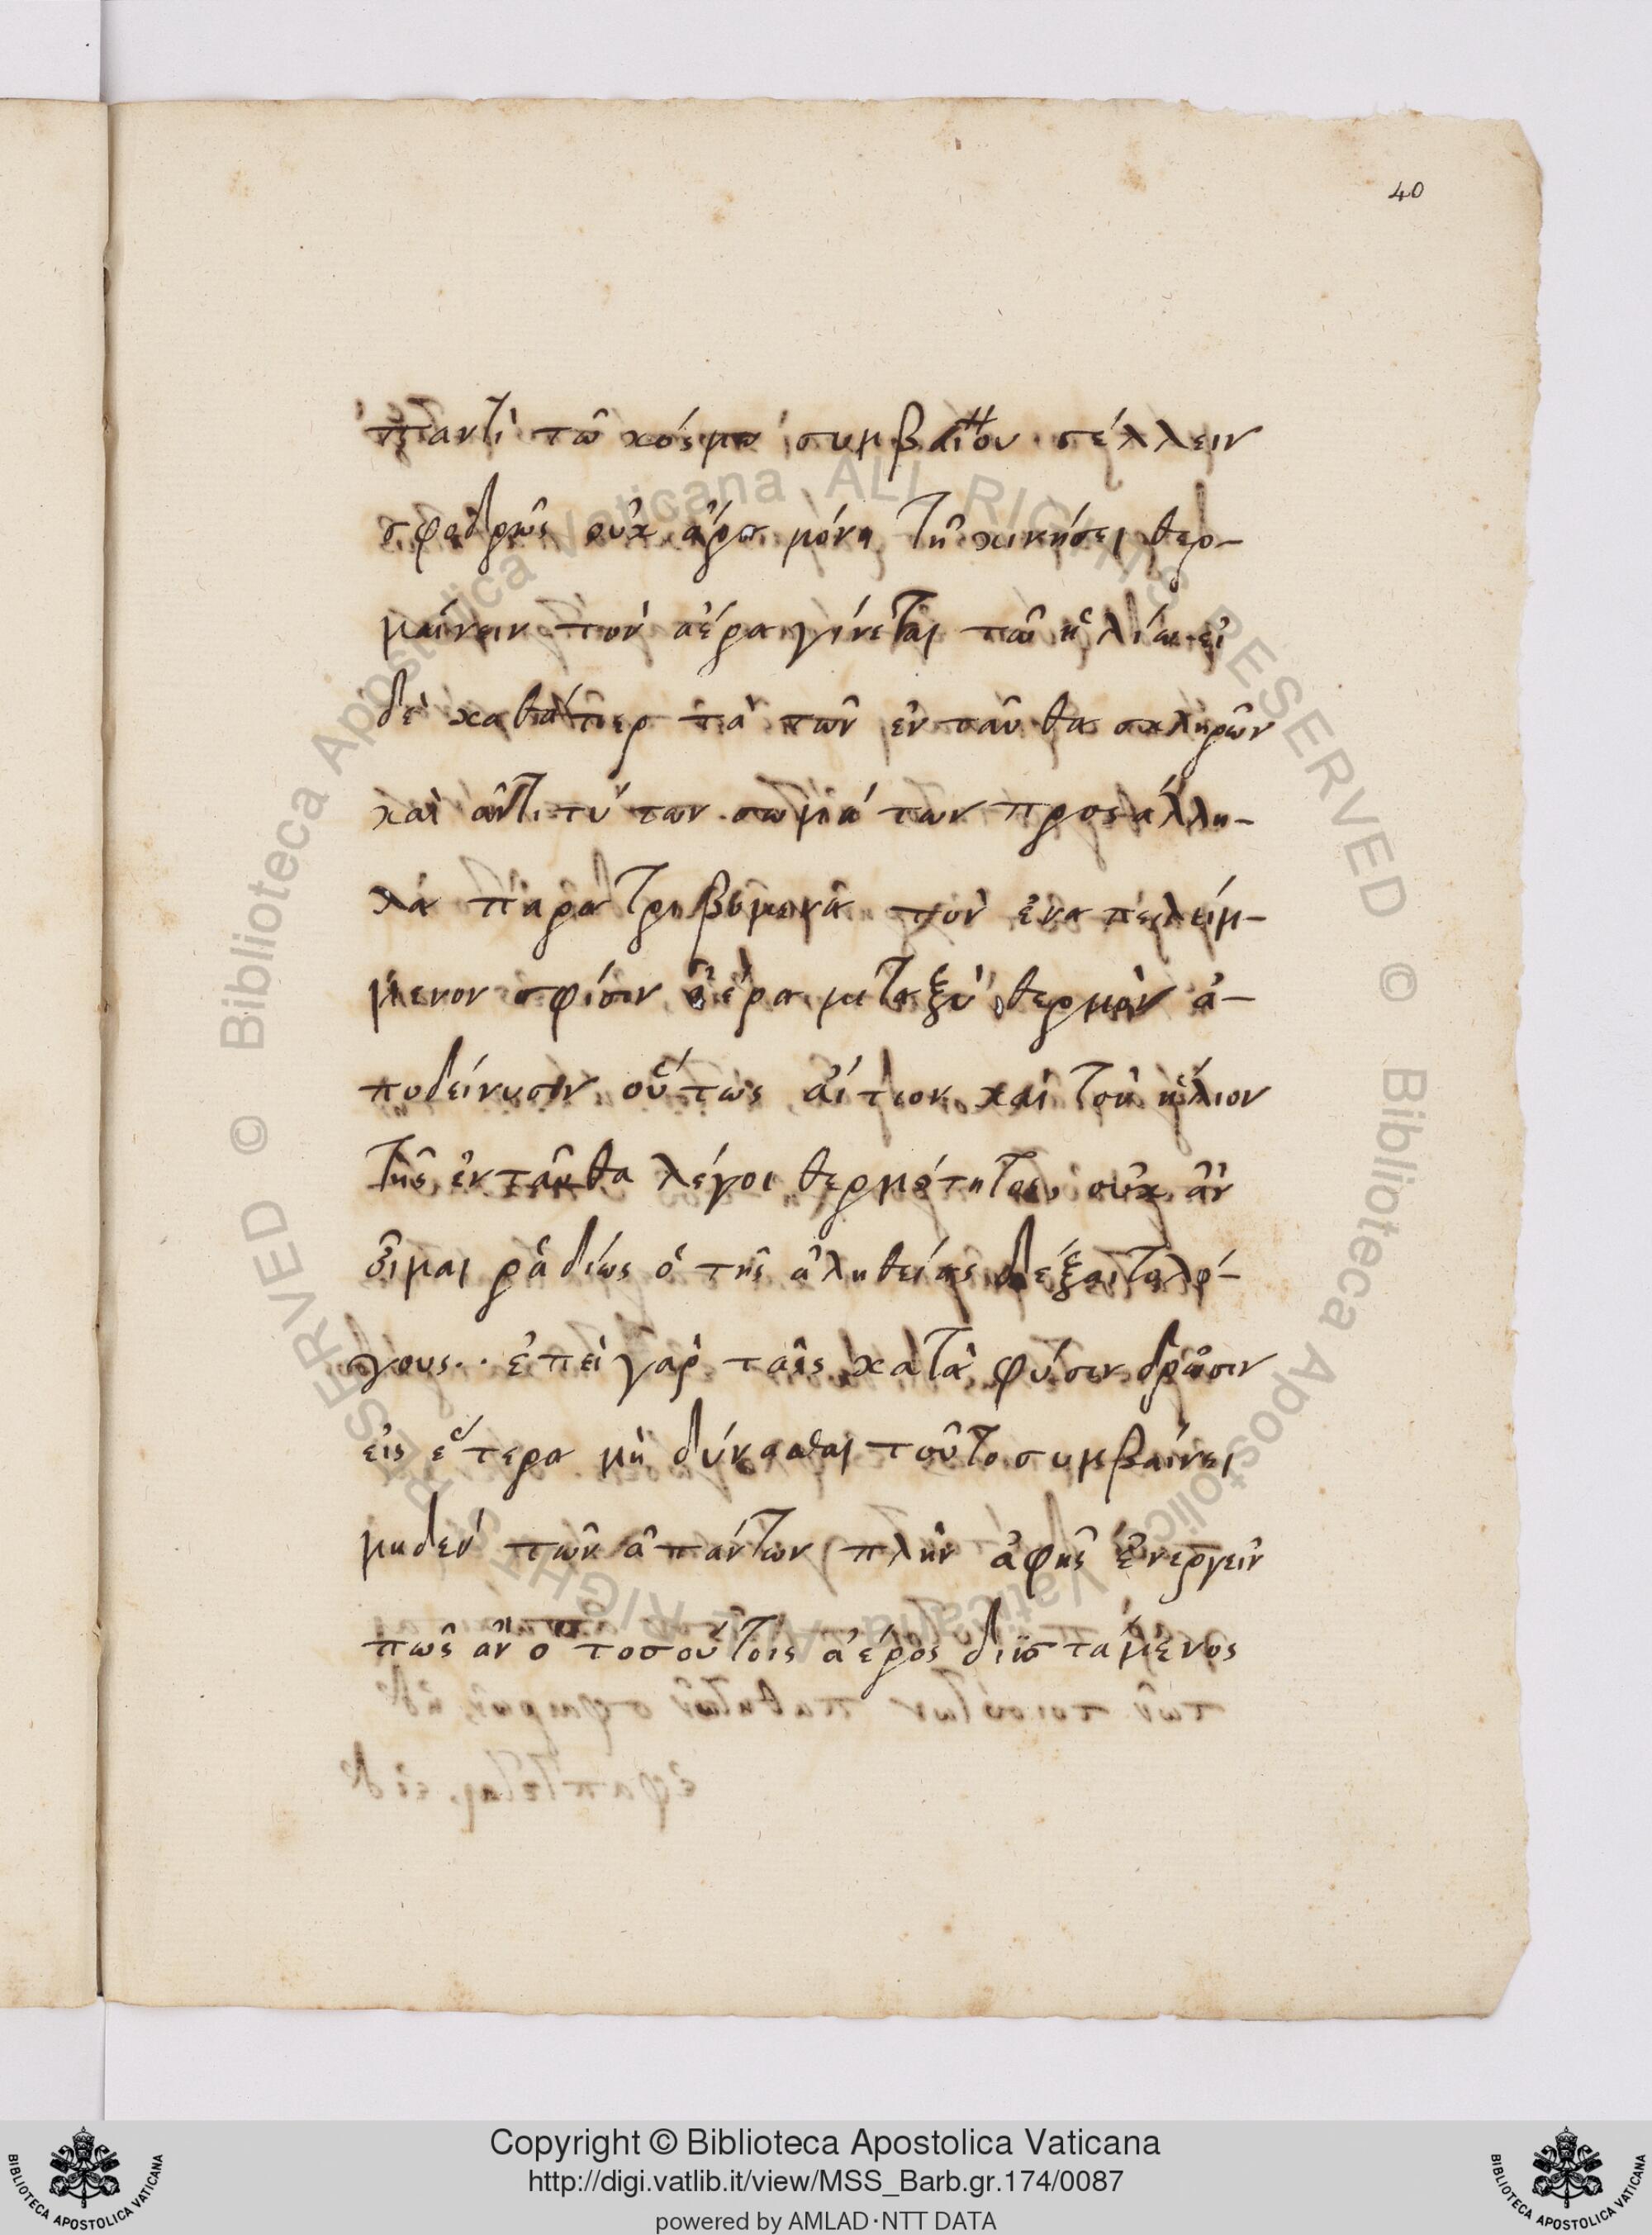 40
παντὶ τῶ κόσμω συμβαῖον στέλλειν
σφοδρῶς οὐκ ἄρα μόνη τῆ κινήσει θερ-
μαίνειν τὸν ἀέρα γίνεται τῶ ἡλίω εἰ
δὲ καθάπερ τὰ τῶν ἐνταῦθα σκληρῶν
καὶ ἀντιτύπων σωμάτων προς άλλη-
λα παρατριβόμενα τὸν ἐναπειλειμ-
μενον σφίσιν ἀέρα μεταξὺ θερμὸν ἀ-
ποδείνυσιν οὕτως αἴτιον καὶ τὸν ἥλιον
τῆς ἐνταῦθα λέγοι θερμότητος, οὐκ ἂν
οἶμαι ῥαδίως ὁ τῆς ἀληθείας δέξαιτο λό-
γους.. ἐπεὶ γὰρ ταῖς κατὰ φύσιν δρᾶσιν
εἰς ἕτερα μὴ δύνασθαι τοῦτο συμβαίνει
μηδὲν τῶν ἁπάντων πλὴν ἁφῆς ἐνεργεῖν
πῶς ἂν ὁ τοσούτοις ἀέρος διϊστάμενος
Copyright © Biblioteca Apostolica Vaticana
http://digi.vatlib.it/view/MSS_Barb.gr.174/0087
powered by AMLAD·NTT DATA
BIBLIOTECA APOSTOLICA VATICANA
BIBLIOTECA APOSTOLICA VATICANA
© Biblioteca Apostolica Vaticana ALL RIGHTS RESERVED © Biblioteca Apostolica Vaticana ALL RIGHTS RESERVED